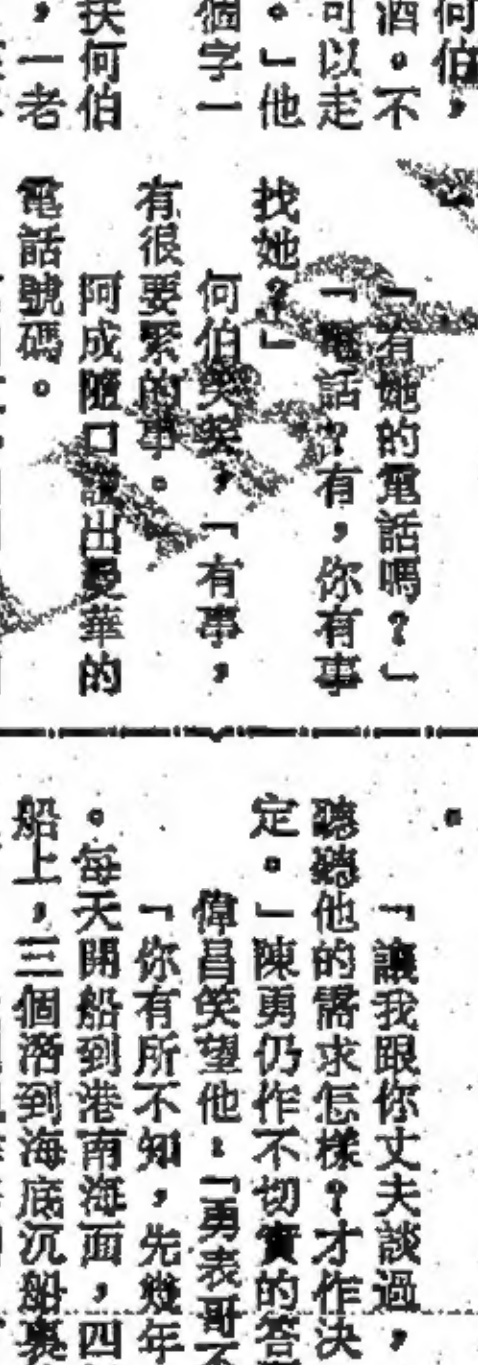 何伯，
酒。不
可以走
。」他
個字一
扶何伯
，一老
「有她的電話嗎？」
「電話？有，你有事
找她？」
何伯笑笑，「有事，
有很要緊的事。
阿成隨口說出曼華的
電話號碼。
。
「讓我跟你丈夫談過，
聽聽他的需求怎樣？才作決
定。」陳勇仍作不切實的答
偉昌笑望他：「勇表哥不
「你有所不知，先幾年
。每天開船到港南海面，四
船上，三個潛到海底沉船裏